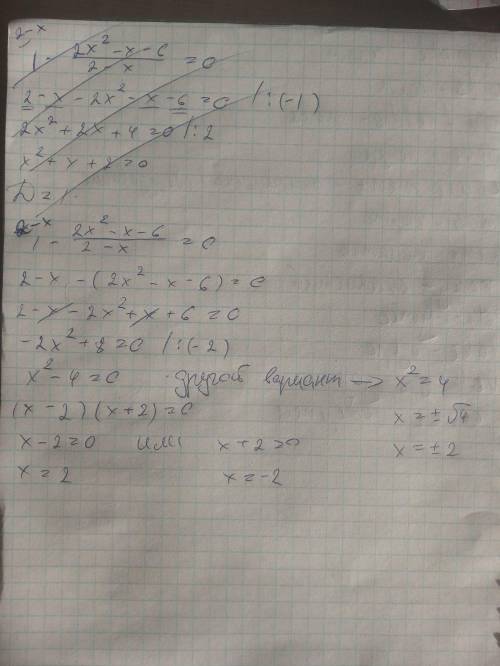 2-x
1 - \frac{2x² - x - 6}{2 - x} = 0
2 - x - 2x² - x - 6 = 0 /:(-1)
2x² + 2x + 4 = 0 /:2
x² + x + 2 = 0
D = 1 -
2-x
1 - \frac{2x² - x - 6}{2 - x} = 0
2 - x - (2x² - x - 6) = 0
2 - x - 2x² + x + 6 = 0
-2x² + 8 = 0 /:(-2)
x² - 4 = 0 другой вариант → x² = 4
(x - 2)(x + 2) = 0 x = ± √4
x - 2 = 0 или x + 2 = 0 x = ± 2
x = 2 x = -2